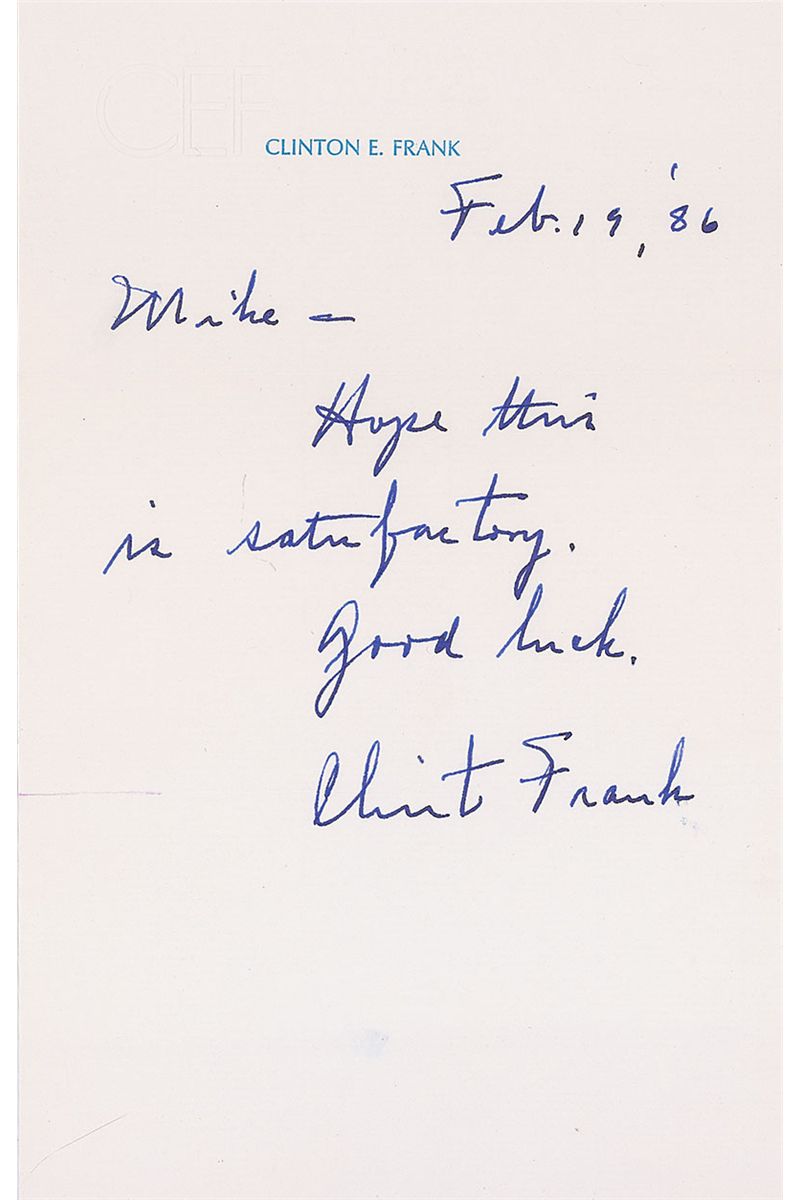 CEF
CLINTON E. FRANK
Feb. 19, '86
Mike –
Hope this
is satisfactory.
Good luck.
Clint Frank